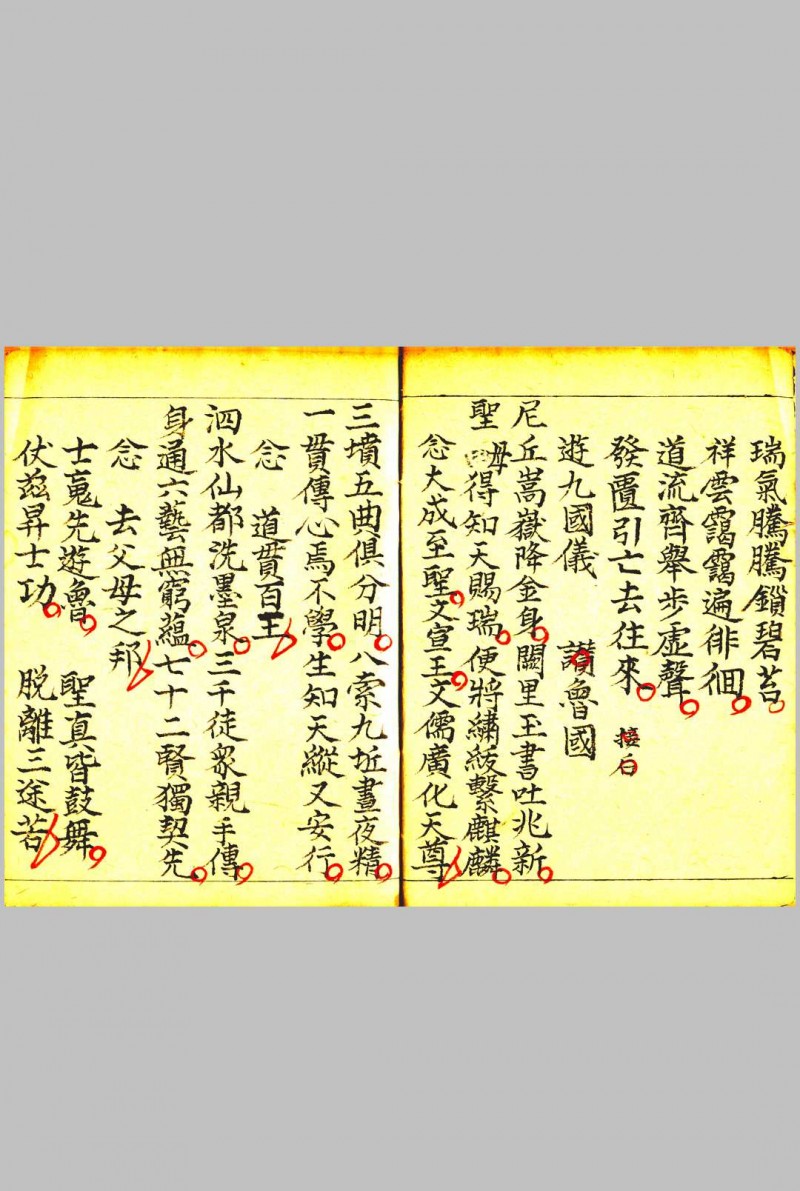 瑞氣騰騰鎖碧苔
祥雲靄靄遍徘徊
道流齊舉步虛聲
發匱引亡去往來 接后
遊九國儀 讚魯國
尼丘嵩嶽降金身闕里玉書吐兆新
聖母得知天賜瑞便將繡紱繫麒麟
念大成至聖文宣王文儒廣化天尊
三墳五典俱分明八索九坵晝夜精
一貫傳心焉不學生知天縱又安行
念 道貫百王
泗水仙都洗墨泉三千徒眾親手傳
身通六藝無窮蘊七十二賢獨契先
念 去父母之邦
士䰟先遊魯 聖真皆鼓舞
伏茲昇士功 脫離三途苦